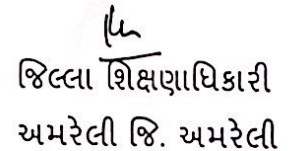 જિલ્લા શિક્ષણાધિકારી
અમરેલી જિ. અમરેલી